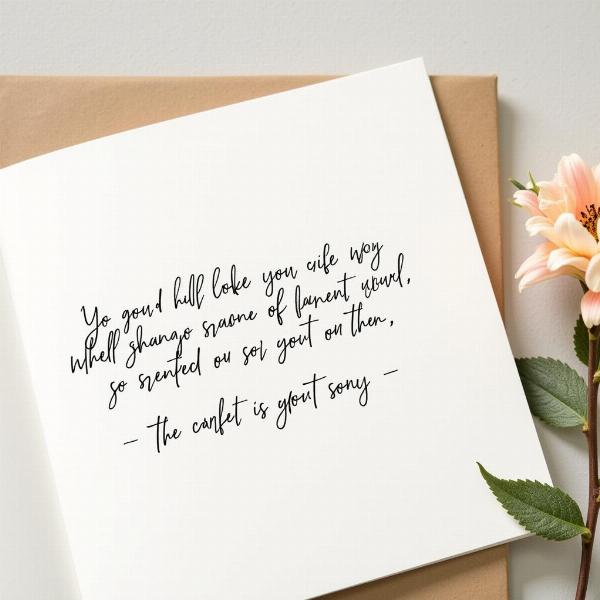 Yo gour hill loke you cife woy
Whell shango sraone of fament wourl,
so srented ou sor yout ou then,
– the canfet is yout sony –